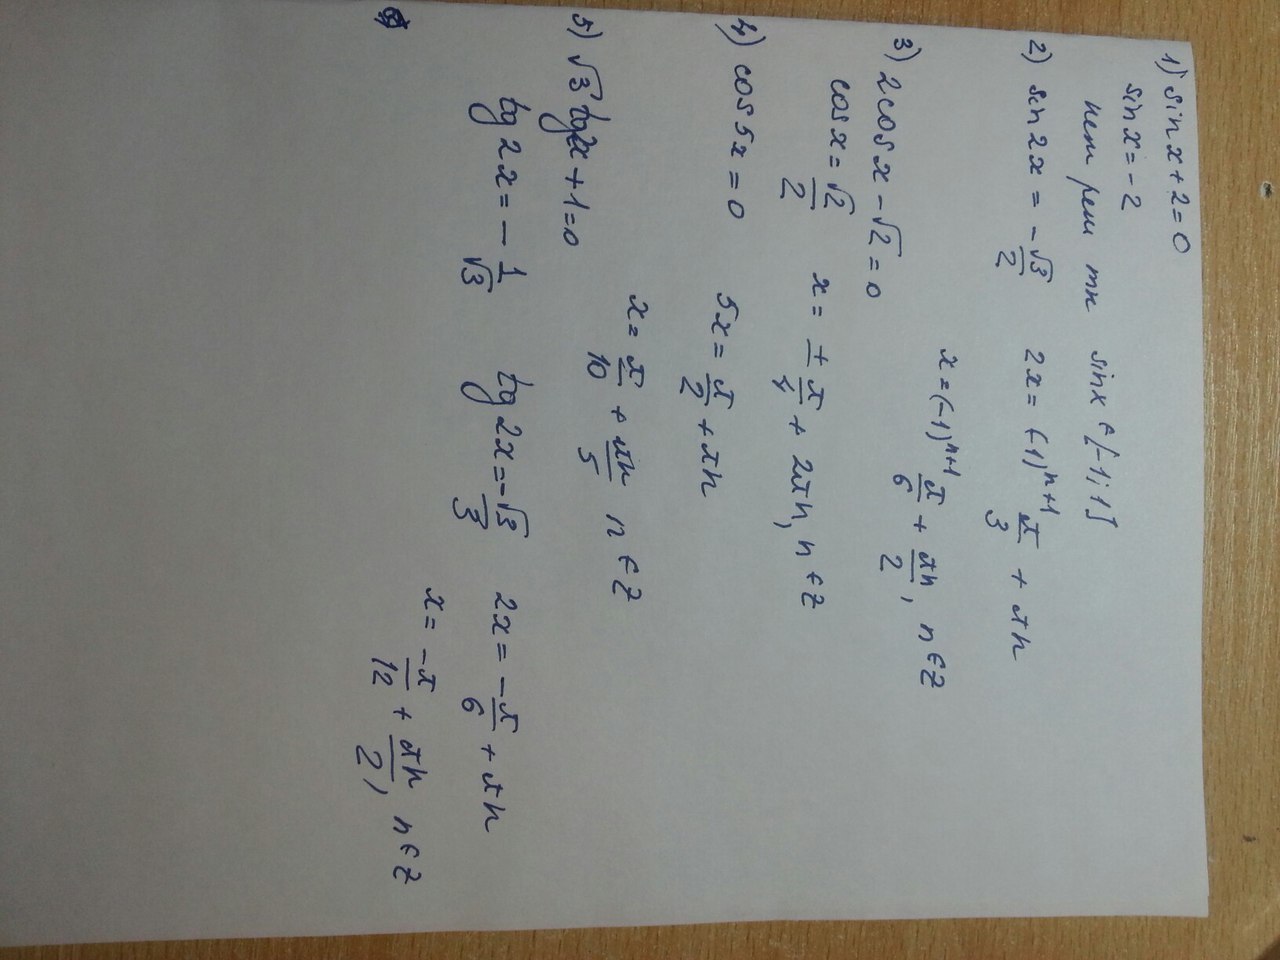 1) sin x + 2 = 0
sin x = - 2
нет реш тк sin x ∈ [-1; 1]
2) sin 2x = -√3/2 2x = (-1)ⁿ⁺¹ π/3 + πn
x = (-1)ⁿ⁺¹ π/6 + πn/2, n ∈ Z
3) 2cos x - √2 = 0
cos x = √2/2 x = ± π/4 + 2πn, n ∈ Z
4) cos 5x = 0 5x = π/2 + πn
x = π/10 + πn/5 n ∈ Z
5) √3 tg2x + 1 = 0
tg 2x = - 1/√3 tg 2x = -√3/3 2x = - π/6 + πn
x = -π/12 + πn/2, n ∈ Z